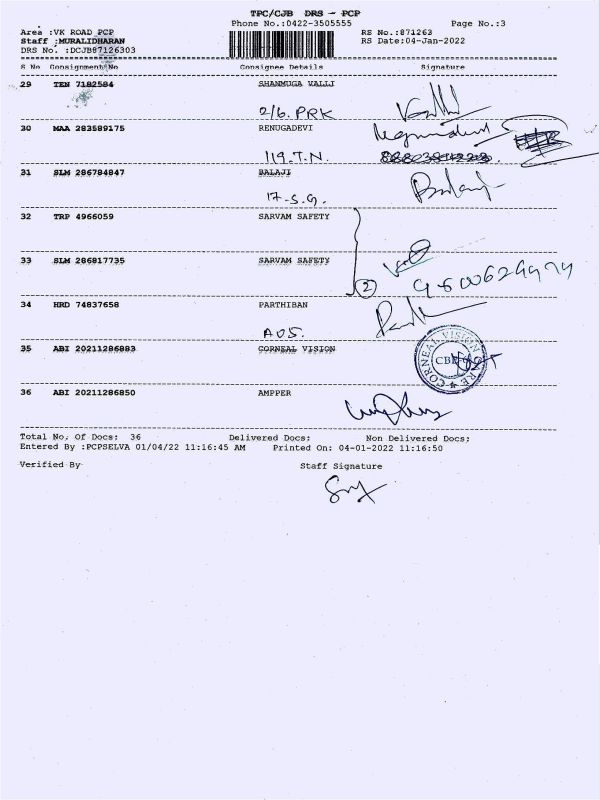 TPC/CJB DRS - PCP
Phone No.:0422-3505555 Page No.:3
Area :VK ROAD PCP RS No.:871263
Staff :MURALIDHARAN RS Date:04-Jan-2022
DRS No. :DCJB87126303
S No Consignment No Consignee Details Signature
29 TEN 7182584 SHANMUGA VALLI
2/6. PRK
30 MAA 283589175 RENUGADEVI
119.T.N.
31 SLM 286784847 BALAJI
17-S.G. Balaji
32 TRP 4966059 SARVAM SAFETY
33 SLM 286817735 SARVAM SAFETY
2
34 HRD 74837658 PARTHIBAN
AOS.
35 ABI 20211286883 CORNEAL VISION
CORNEAL VISION CARE
CBE
36 ABI 20211286850 AMPPER
Total No. Of Docs: 36 Delivered Docs: Non Delivered Docs:
Entered By :PCPSELVA 01/04/22 11:16:45 AM Printed On: 04-01-2022 11:16:50
Verified By Staff Signature